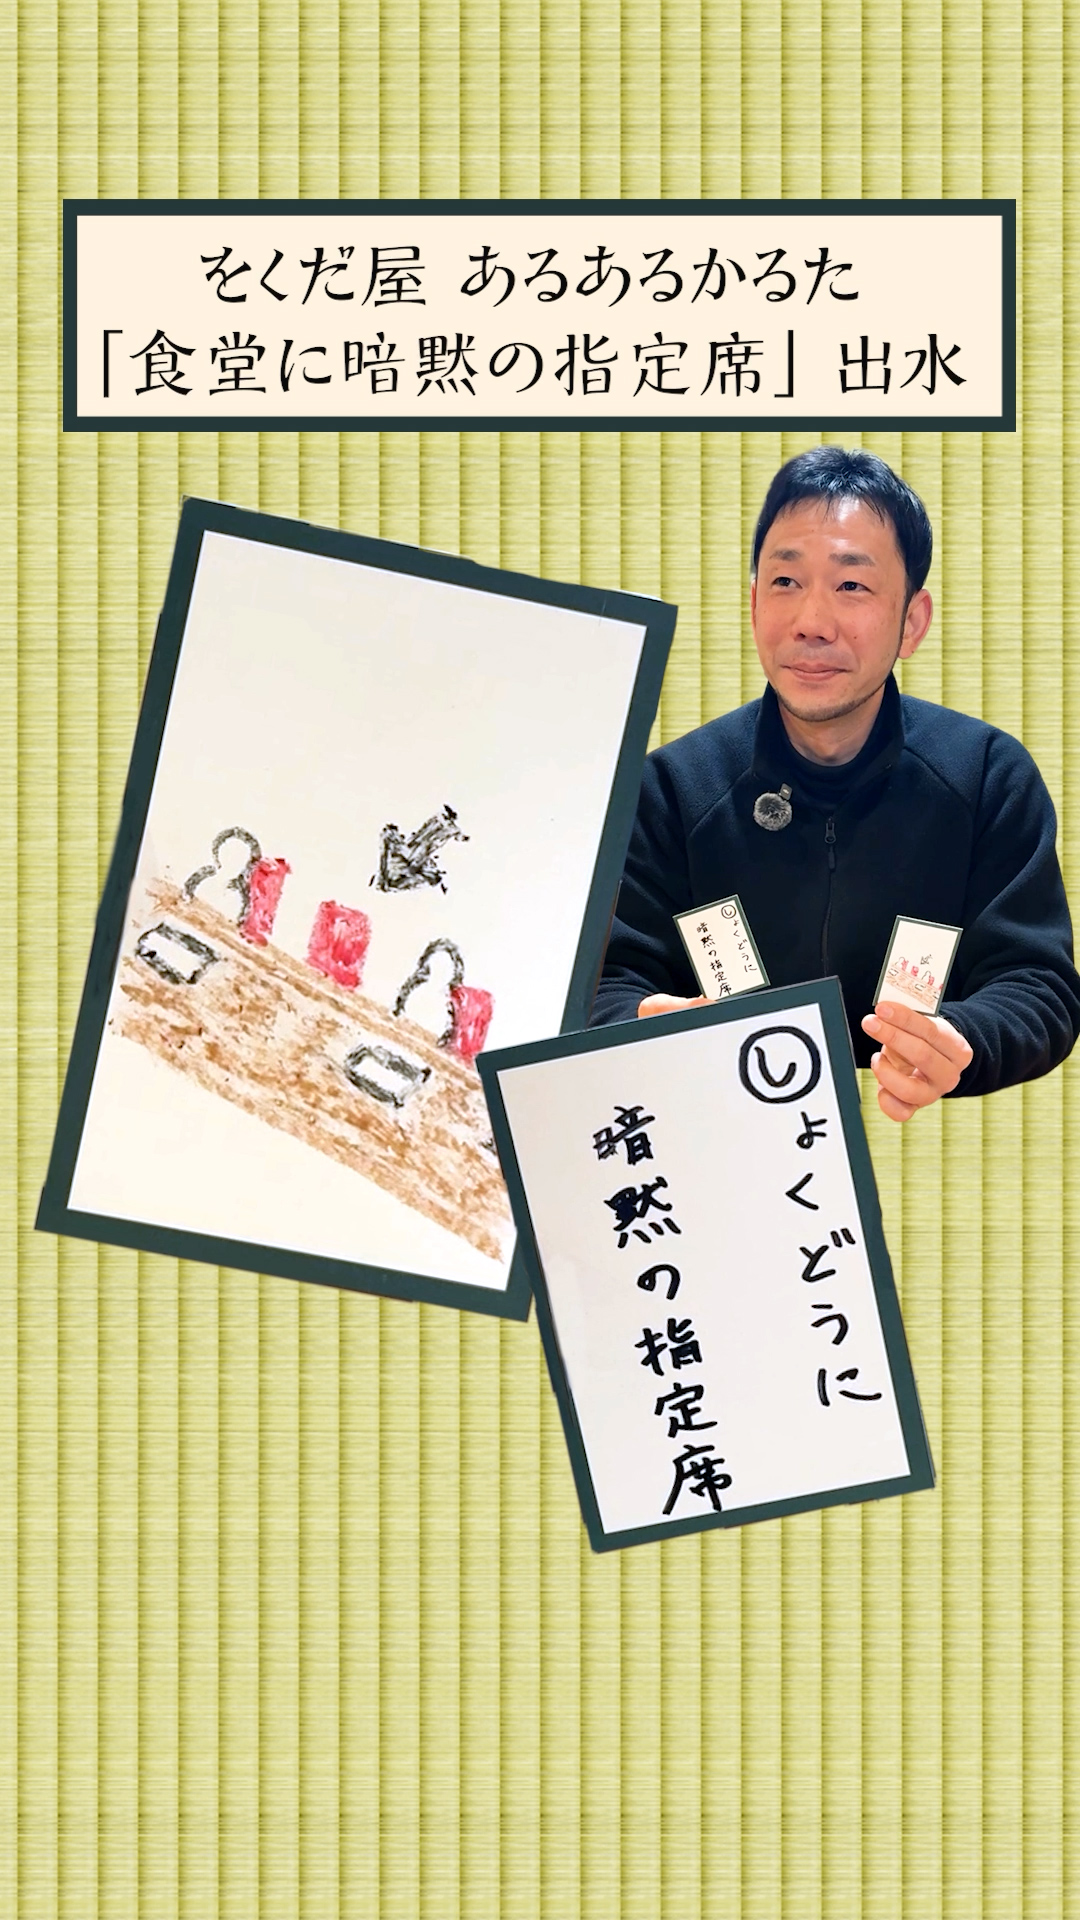 をくだ屋 あるあるかるた
「食堂に暗黙の指定席」出水
しょくどうに
暗黙の指定席
しょくどうに
暗黙の指定席